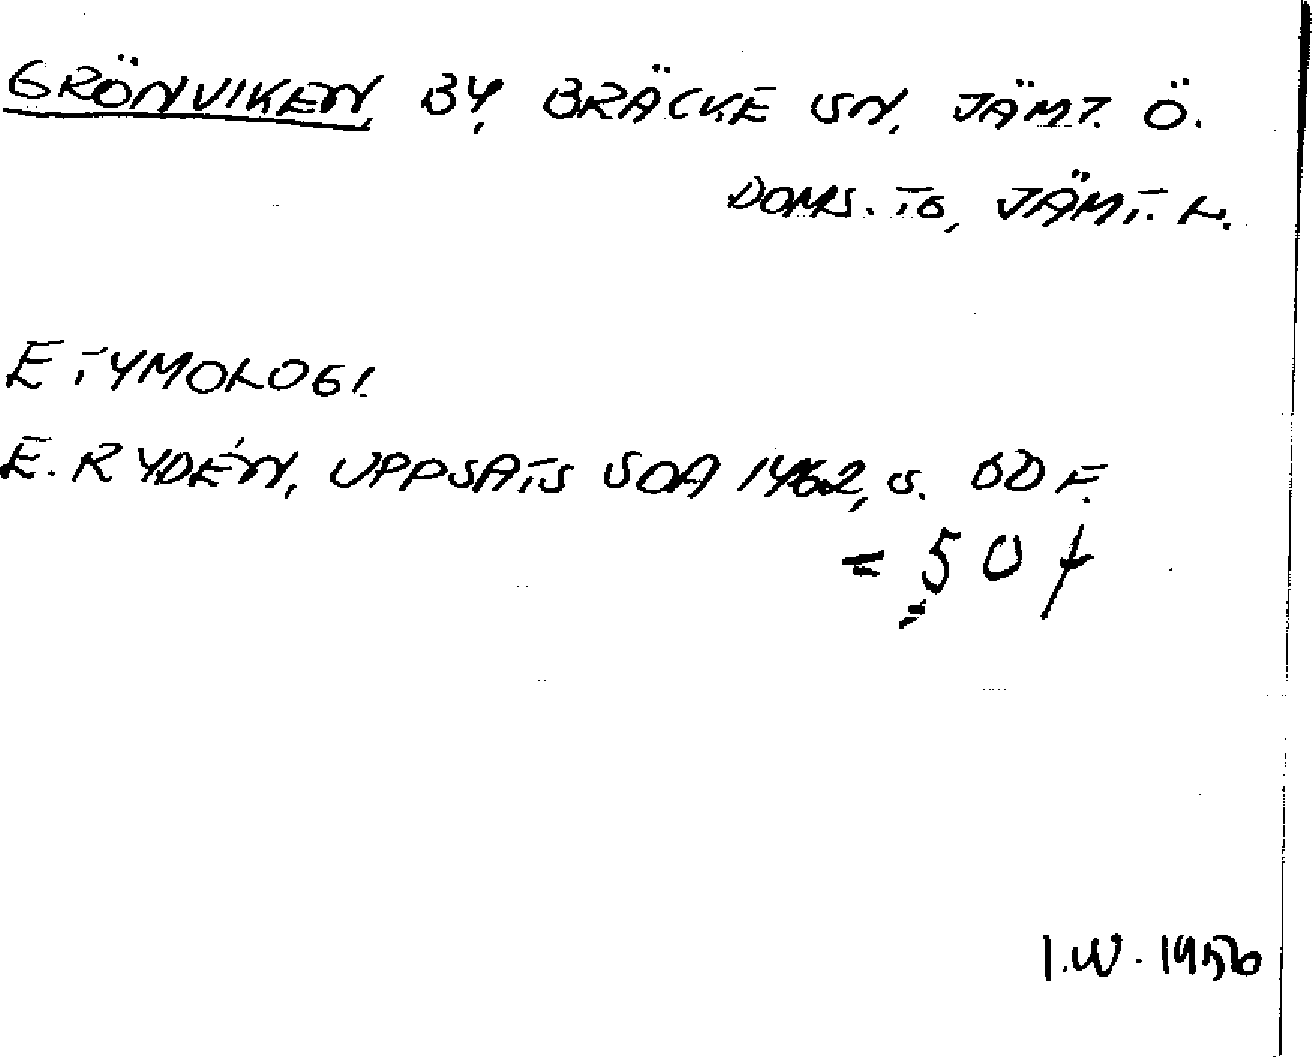 GRÖNVIKEN, BY, BRÄCKE SN, JÄMT. Ö.
DOMS. TG, JÄMT. L.
ETYMOLOGI.
E. RYDÉN, UPPSATS SOA 1462, S. 50 F.
= 50 f
I.W. 1956